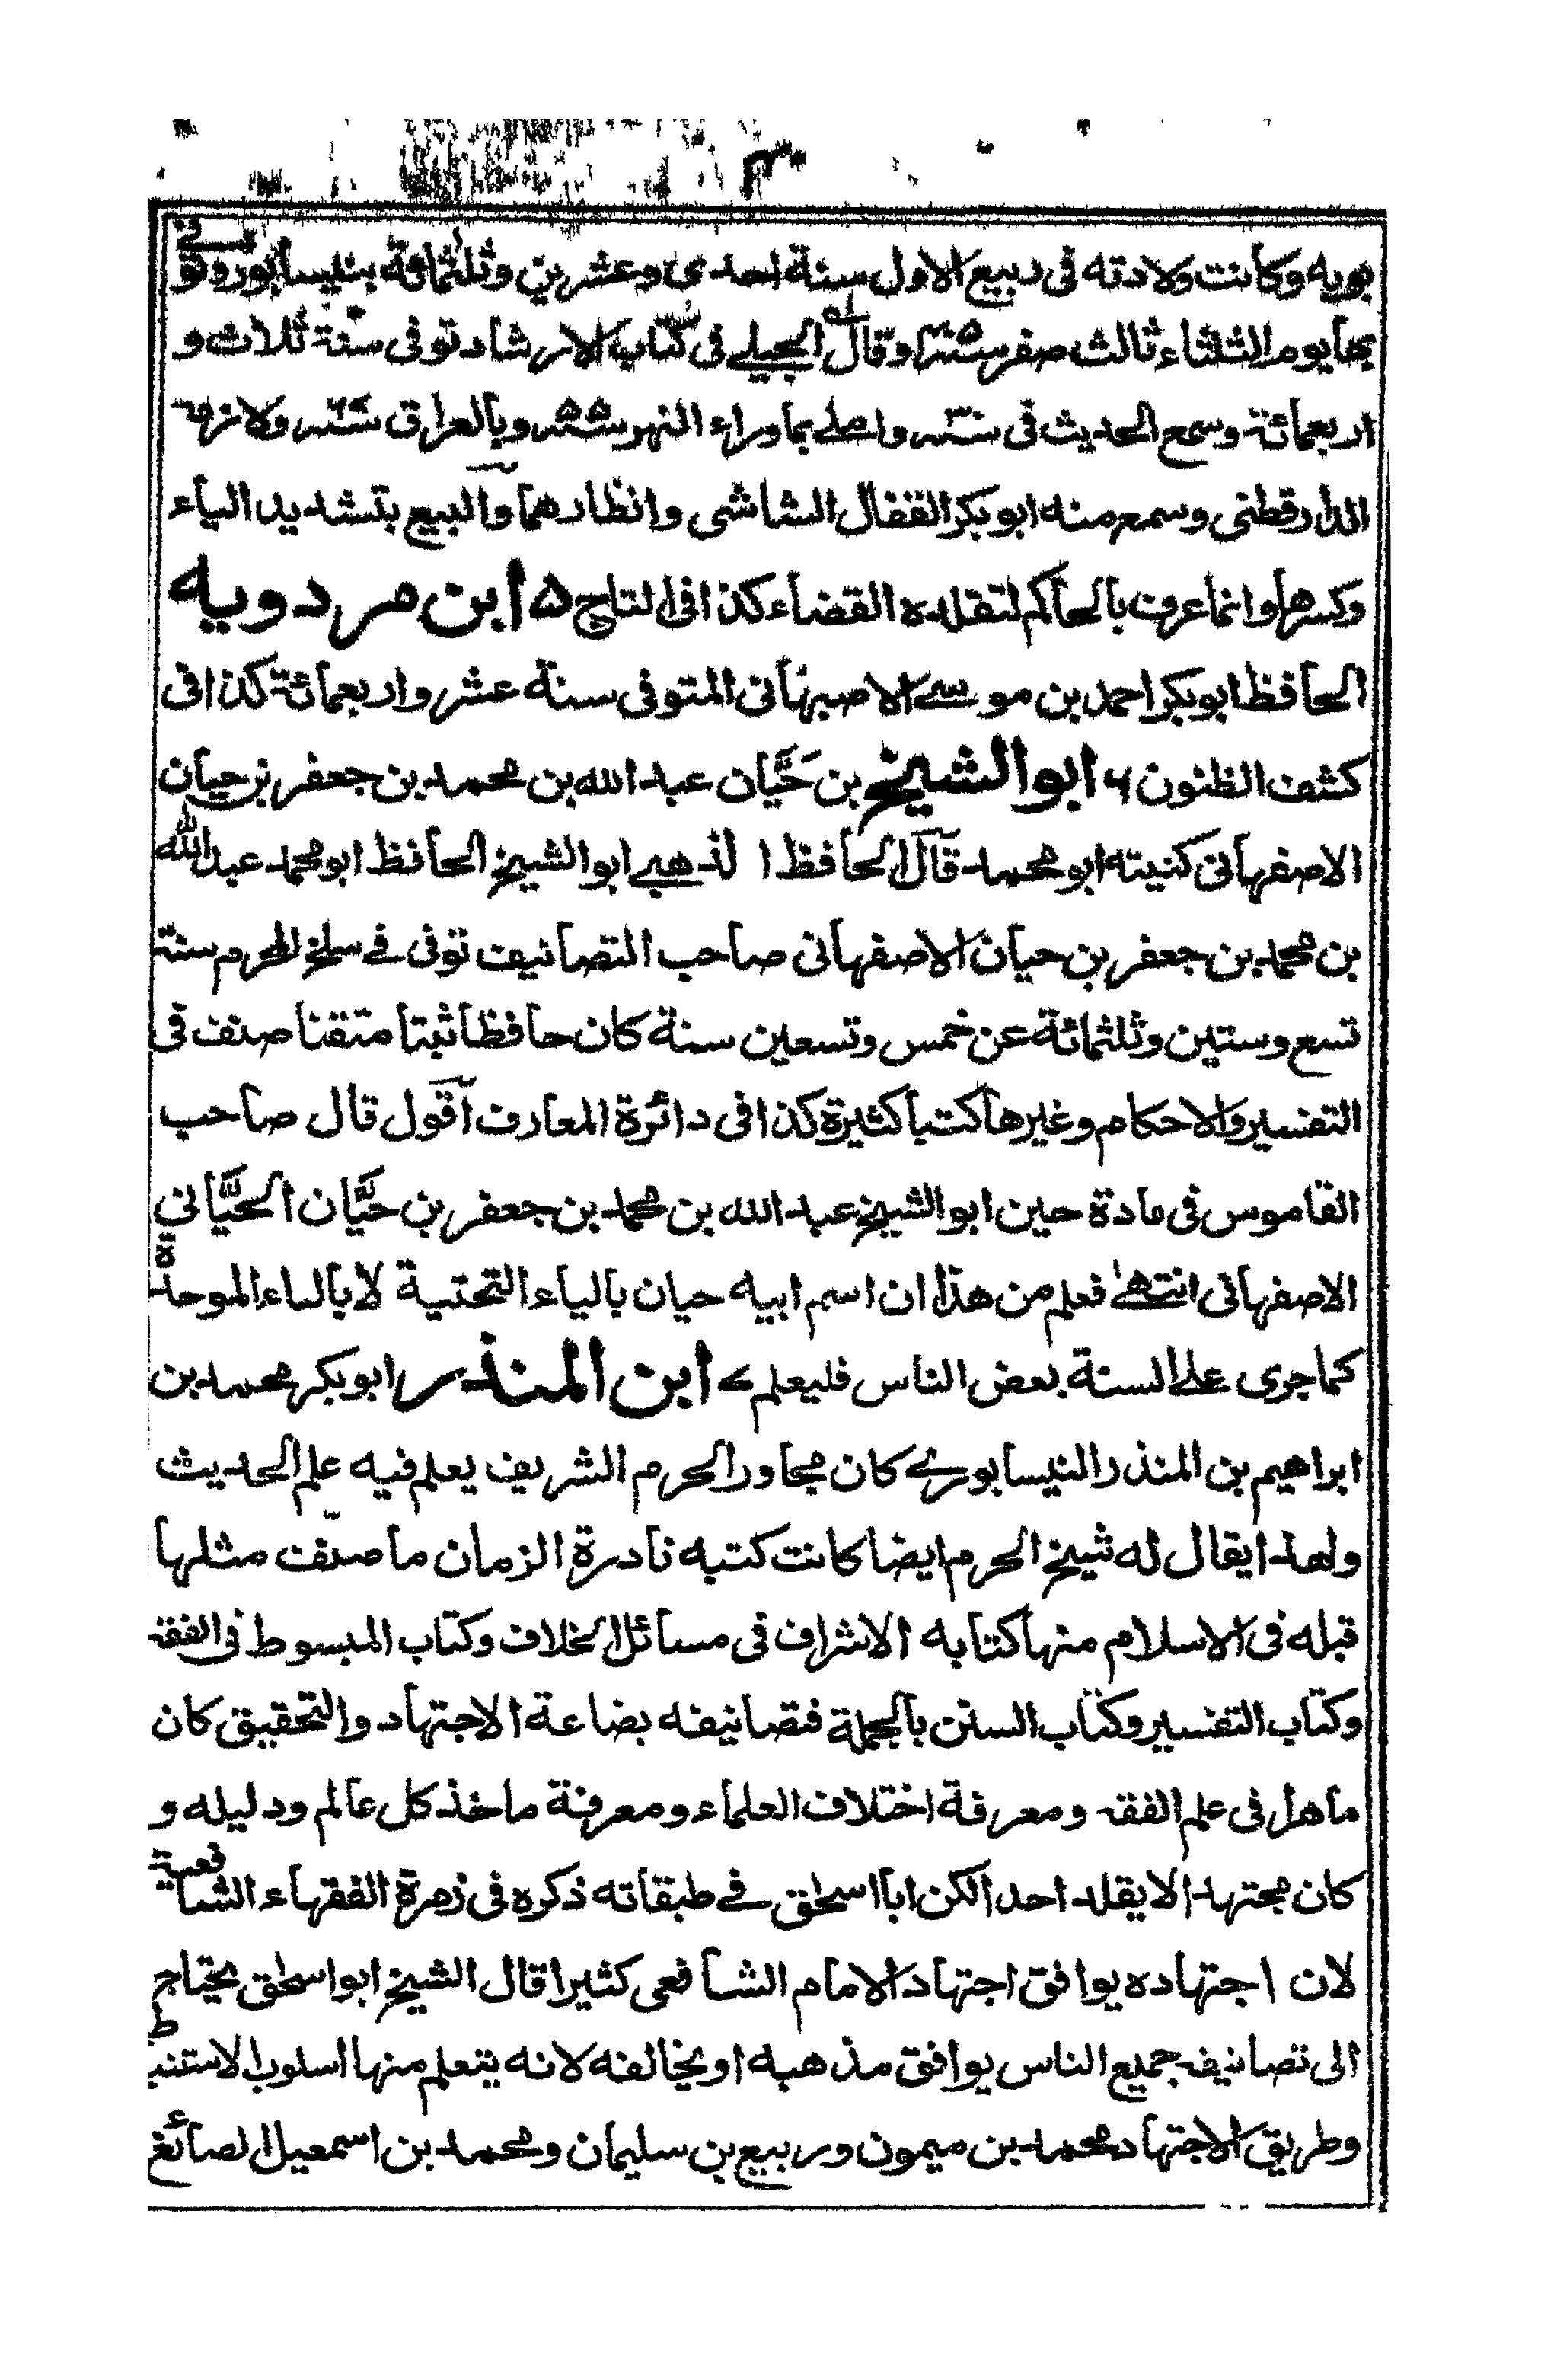 بويه وكانت ولادته فى ربيع الاول سنة احدى وعشرين وثلثمائة بنيسابور وتوفى
بها يوم الثلثاء ثالث صفر سنة ٤٠٥ وقال الجيلے فى كتاب الارشاد توفى سنة ثلاث و
اربعمائة وسمع الحديث فى سنة واصلے بماوراء النهر سنة ٥٥ وبالعراق سنة ولازمه
الدارقطنى وسمع منه ابو بكر القفال الشاشى وانظارهما والبيع بتشديد الياء
وكسرها وانما عرف بالحاكم لتقلده القضاء كذا فى التاج ۵ ابن مردويه
الحافظ ابو بكر احمد بن موسے الاصبهانى المتوفى سنة عشر واربعمائة كذا فى
كشف الظنون ۶ ابو الشيخ بن حَيَّان عبد الله بن محمد بن جعفر بن حيان
الاصفهانى كنيته ابو محمد قال الحافظ الذهبے ابو الشيخ الحافظ ابو محمد عبد الله
بن محمد بن جعفر بن حيان الاصفهانى صاحب التصانيف توفى فے سلخ المحرم سنة
تسع وستين وثلثمائة عن خمس وتسعين سنة كان حافظا ثبتا متقنا صنف فى
التفسير والاحكام وغيرها كتبا كثيرة كذا فى دائرة المعارف اقول قال صاحب
القاموس فى مادة حين ابو الشيخ عبد الله بن محمد بن جعفر بن حَيَّان الحَيَّانى
الاصفهانى انتهے فعلم من هذا ان اسم ابيه حيان بالياء التحتية لا بالباء الموحدة
كما جرى علے السنة بعض الناس فليعلم ۷ ابن المنذر ابو بكر محمد بن
ابراهيم بن المنذر النيسابورے كان مجاور الحرم الشريف يعلم فيه علم الحديث
ولهذا يقال له شيخ الحرم ايضا كانت كتبه نادرة الزمان ما صنف مثلها
قبله فى الاسلام منها كتابه الاشراف فى مسائل الخلاف وكتاب المبسوط فى الفقه
وكتاب التفسير وكتاب السنن بالجملة فتصانيفه بضاعة الاجتهاد والتحقيق كان
ماهل فى علم الفقه ومعرفة اختلاف العلماء ومعرفة ماخذ كل عالم ودليله و
كان مجتهد الا يقلد احد الكن ابا اسحق فے طبقاته ذكره فى زمرة الفقهاء الشافعية
لان اجتهاده يوافق اجتهاد الامام الشافعى كثيرا قال الشيخ ابو اسحق يحتاج
الى تصانيفه جميع الناس يوافق مذهبه او يخالفه لانه يتعلم منها اسلوب الاستنباط
وطريق الاجتهاد محمد بن ميمون وربيع بن سليمان ومحمد بن اسمعيل الصائغ